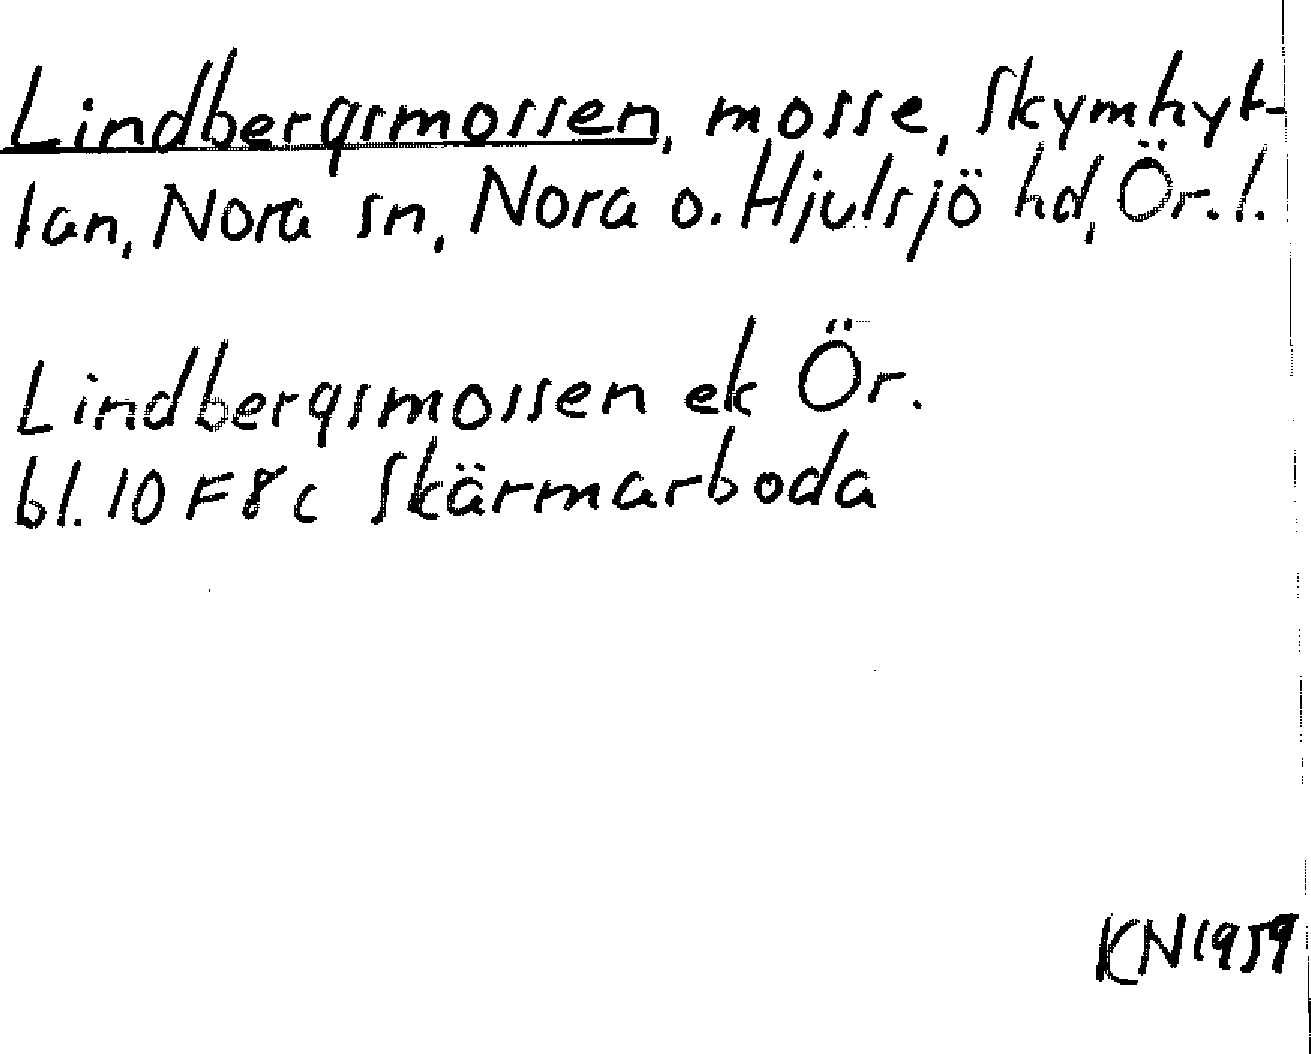 Lindbergsmossen, mosse, Skymhyt-
tan, Nora sn, Nora o. Hjulsjö hd, Ör. l.
Lindbergsmossen ek Ör.
bl. 10 F 8 c Skärmarboda
KN 1959